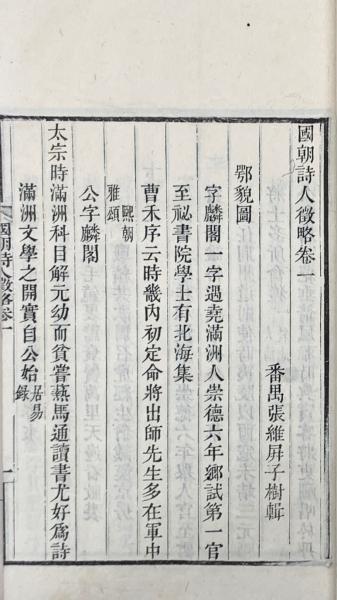 國朝詩人徵略卷一
番禺張維屏子樹輯
鄂貌圖
字麟閣一字遇堯滿洲人崇德六年鄉試第一官
至祕書院學士有北海集
曹禾序云時畿內初定命將出師先生多在軍中
熙朝
雅頌
公字麟閣
太宗時滿洲科目解元幼而貧嘗爇馬通讀書尤好為詩
滿洲文學之開實自公始
居易
錄
國朝詩人徵略卷一
一